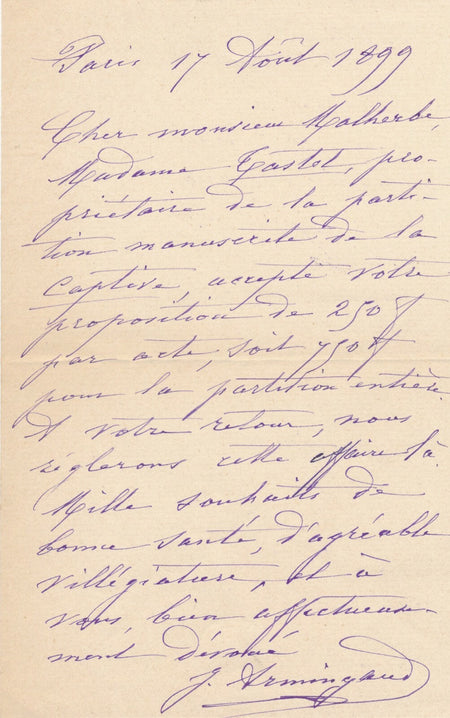 Paris 17 Août 1899
Cher monsieur Malherbe,
Madame Tastet, pro-
priétaire de la parti-
tion manuscrite de la
Captive, accepte votre
proposition de 250 f
par acte, soit 750 f
pour la partition entière.
A votre retour, nous
réglerons cette affaire là.
Mille souhaits de
bonne santé, d'agréable
villégiature, et à
vous, bien affectueuse-
ment dévoué
J. Armingaud